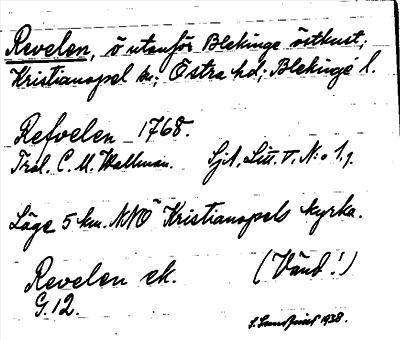 Revelen, ö utanför Blekinge östkust;
Kristianopel sn; Östra hd; Blekinge l.
Refvelen 1768.
Tral. C. M. Wallman. Sjk. Litt. V. N:o 1, 9.
Läge 5 km. NNÖ Kristianopels kyrka.
Revelen ek. (Vänd!)
G. 12.
1938.